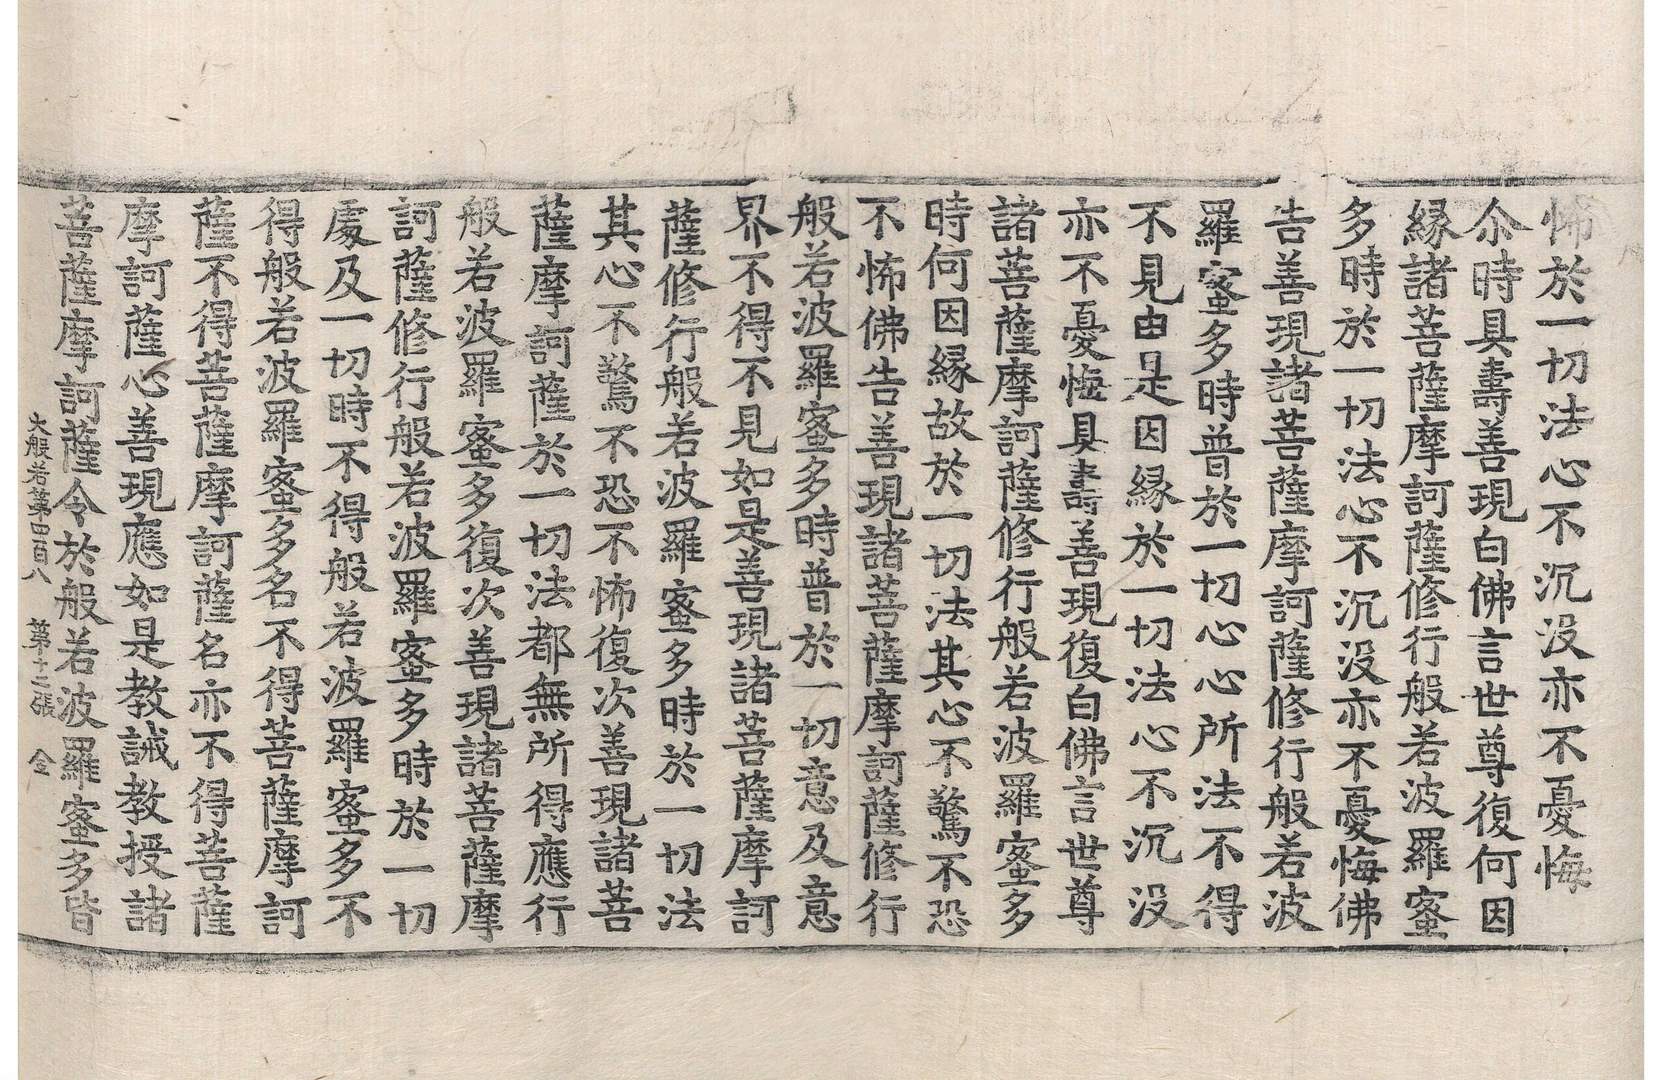 怖於一切法心不沉没亦不憂悔
尒時具壽善現白佛言世尊復何因
縁諸菩薩摩訶薩修行般若波羅蜜
多時於一切法心不沉没亦不憂悔佛
告善現諸菩薩摩訶薩修行般若波
羅蜜多時普於一切心心所法不得
不見由是因縁於一切法心不沉没
亦不憂悔具壽善現復白佛言世尊
諸菩薩摩訶薩修行般若波羅蜜多
時何因縁故於一切法其心不驚不恐
不怖佛告善現諸菩薩摩訶薩修行
般若波羅蜜多時普於一切意及意
界不得不見如是善現諸菩薩摩訶
薩修行般若波羅蜜多時於一切法
其心不驚不恐不怖復次善現諸菩
薩摩訶薩於一切法都無所得應行
般若波羅蜜多復次善現諸菩薩摩
訶薩修行般若波羅蜜多時於一切
處及一切時不得般若波羅蜜多不
得般若波羅蜜多名不得菩薩摩訶
薩不得菩薩摩訶薩名亦不得菩薩
摩訶薩心善現應如是教誡教授諸
菩薩摩訶薩令於般若波羅蜜多皆
大般若第四百八 第十二張 金